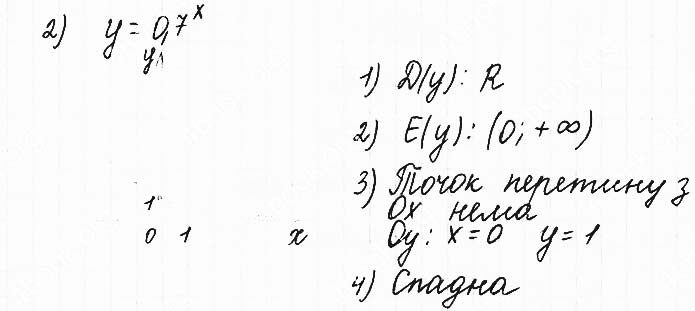 2) y = 0,7^x
y
1) D(y): R
2) E(y): (0; +∞)
3) Точок перетину з
Ox нема
1
0 1 x
Oy: x=0 y=1
4) Спадна